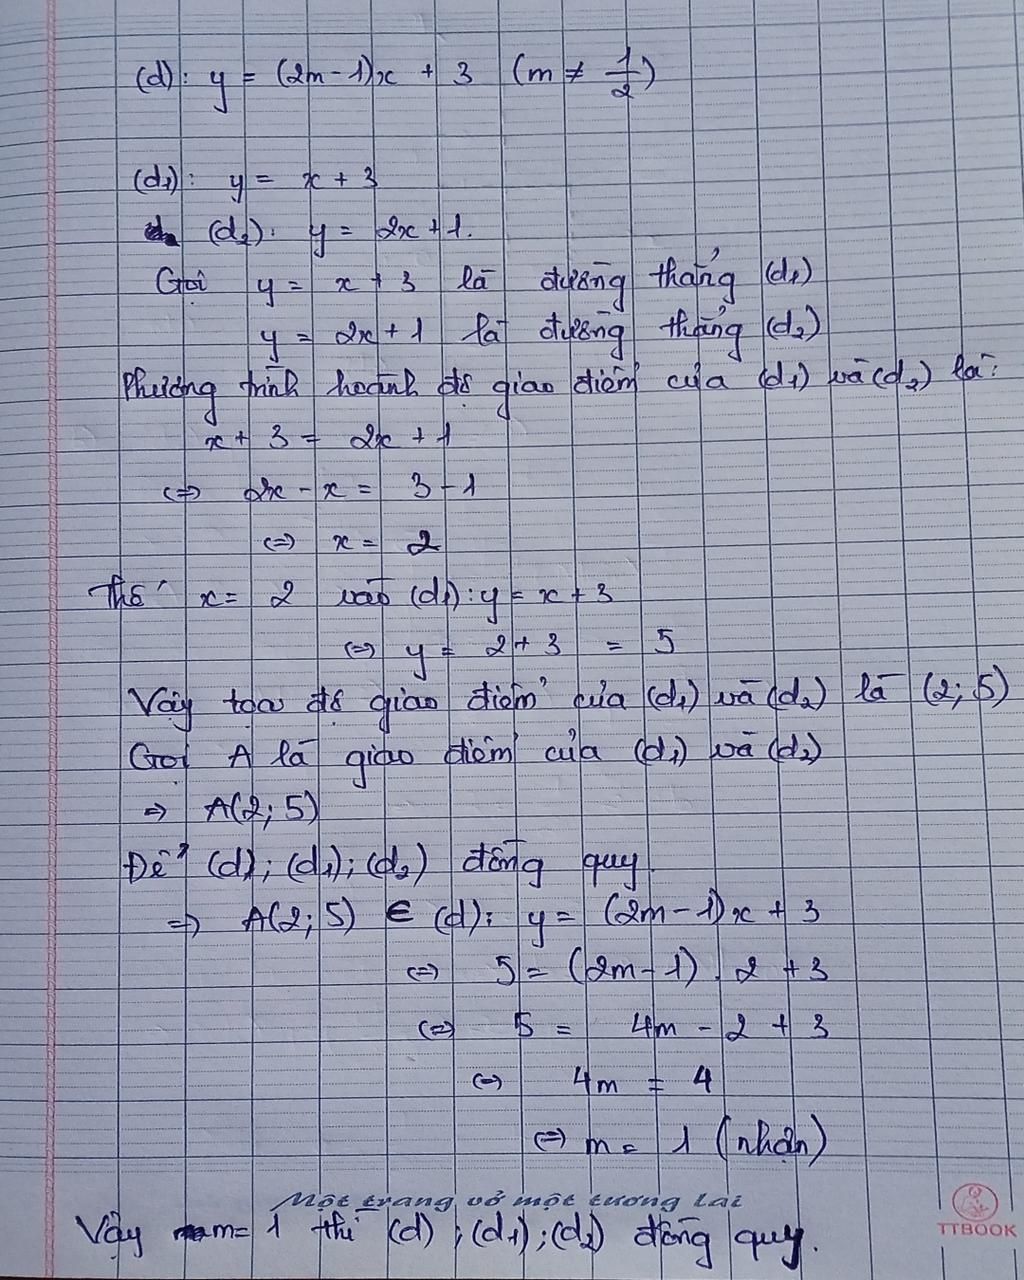 (d): y = (2m-1)x + 3 (m ≠ 1/2)
(d₁): y = x + 3
(d₂): y = 2x + 1.
Gọi y = x + 3 là đường thẳng (d₁)
y = 2x + 1 là đường thẳng (d₂)
Phương trình hoành độ giao điểm của (d₁) và (d₂) là:
x + 3 = 2x + 1
⇔ 2x - x = 3 - 1
⇔ x = 2
Thế x = 2 vào (d₁): y = x + 3
⇔ y = 2 + 3 = 5
Vậy tọa độ giao điểm của (d₁) và (d₂) là (2; 5)
Gọi A là giao điểm của (d₁) và (d₂)
⇒ A(2; 5)
Để (d); (d₁); (d₂) đồng quy
⇒ A(2; 5) ∈ (d): y = (2m-1)x + 3
⇔ 5 = (2m-1).2 + 3
⇔ 5 = 4m - 2 + 3
⇔ 4m = 4
⇔ m = 1 (nhận)
Một trang vở một tương lai
Vậy m = 1 thì (d); (d₁); (d₂) đồng quy.
TTBOOK